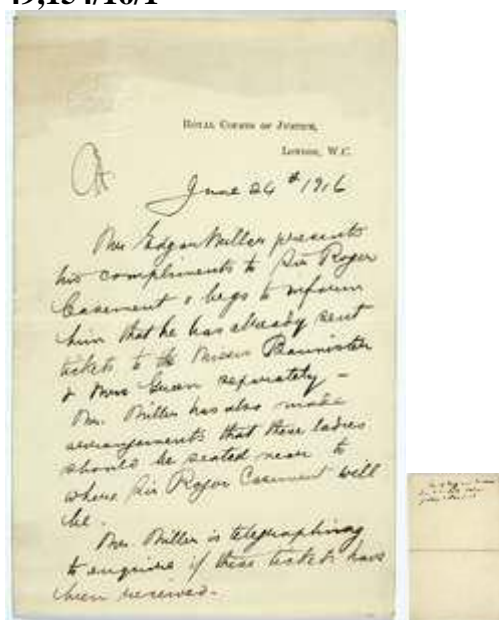 49,154/16/1
Royal Courts of Justice,
London, W.C.
June 24th 1916
Mr Edgar Miller presents
his compliments to Sir Roger
Casement & begs to inform
him that he has already sent
tickets to the Misses Bannister
& Mrs Green separately –
Mr. Miller has also made
arrangements that these ladies
should be seated near to
where Sir Roger Casement will
be.
Mr Miller is telegraphing
to enquire if these tickets have
been received.